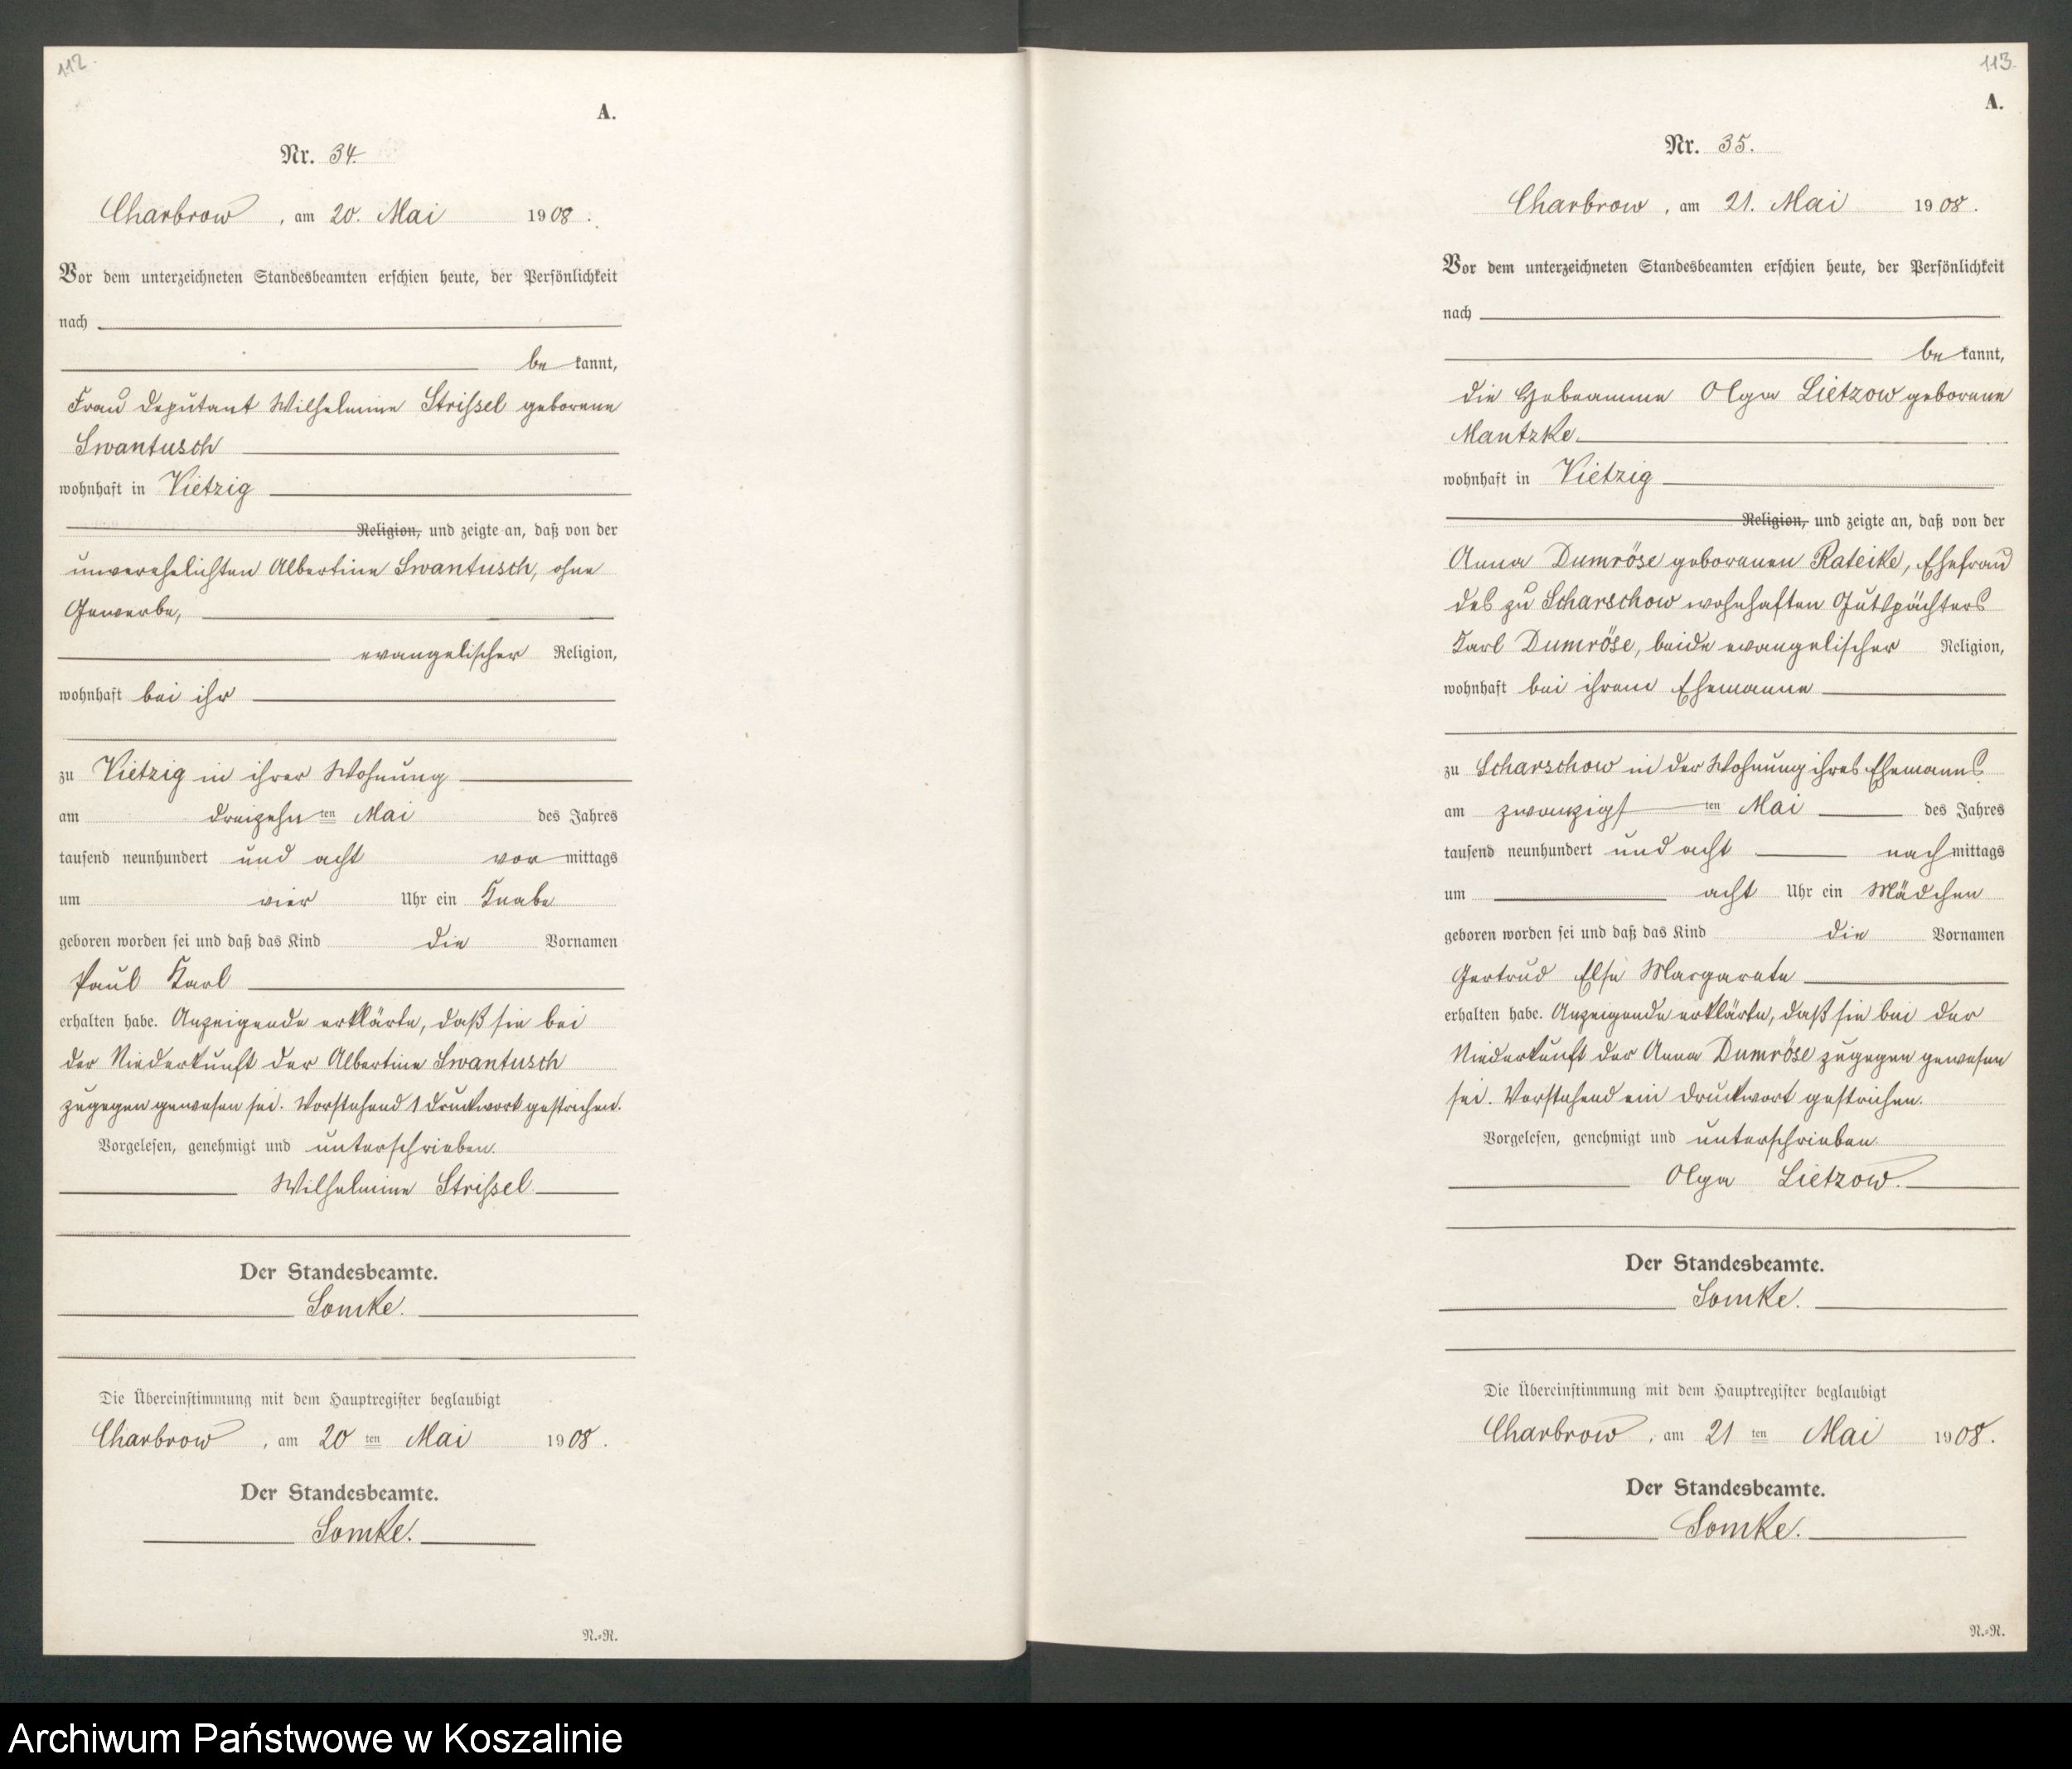 112.
A.
Nr. 34.
Charbrow, am 20. Mai 1908.
Vor dem unterzeichneten Standesbeamten erschien heute, der Persönlichkeit
nach
be kannt,
Frau Deputant Wilhelmine Strißel geborene
Swantusch
wohnhaft in Vietzig
Religion, und zeigte an, daß von der
unverehelichten Albertine Swantusch, ohne
Gewerbe,
evangelischer Religion,
wohnhaft bei ihr
zu Vietzig in ihrer Wohnung
am dreizehn ten Mai des Jahres
tausend neunhundert und acht vor mittags
um vier Uhr ein Knabe
geboren worden sei und daß das Kind die Vornamen
Paul Karl
erhalten habe. Anzeigende erklärte, daß sie bei
der Niederkunft der Albertine Swantusch
zugegen gewesen sei. Vorstehend 1 Druckwort gestrichen.
Vorgelesen, genehmigt und unterschrieben.
Wilhelmine Strißel
Der Standesbeamte.
Somke.
Die Übereinstimmung mit dem Hauptregister beglaubigt
Charbrow, am 20 ten Mai 1908.
Der Standesbeamte.
Somke.
N.=R.
113.
A.
Nr. 35.
Charbrow, am 21. Mai 1908.
Vor dem unterzeichneten Standesbeamten erschien heute, der Persönlichkeit
nach
be kannt,
die Hebeamme Olga Lietzow geborene
Mantzke.
wohnhaft in Vietzig
Religion, und zeigte an, daß von der
Anna Dumröse geborenen Rateike, Ehefrau
des zu Scharschow wohnhaften Gutspächters
Karl Dumröse, beide evangelischer Religion,
wohnhaft bei ihrem Ehemanne
zu Scharschow in der Wohnung ihres Ehemanns
am zwanzigs ten Mai des Jahres
tausend neunhundert und acht nach mittags
um acht Uhr ein Mädchen
geboren worden sei und daß das Kind die Vornamen
Gertrud Else Margarete
erhalten habe. Anzeigende erklärte, daß sie bei der
Niederkunft der Anna Dumröse zugegen gewesen
sei. Vorstehend ein Druckwort gestrichen.
Vorgelesen, genehmigt und unterschrieben.
Olga Lietzow.
Der Standesbeamte.
Somke.
Die Übereinstimmung mit dem Hauptregister beglaubigt
Charbrow, am 21 ten Mai 1908.
Der Standesbeamte.
Somke.
N.=R.
Archiwum Państwowe w Koszalinie